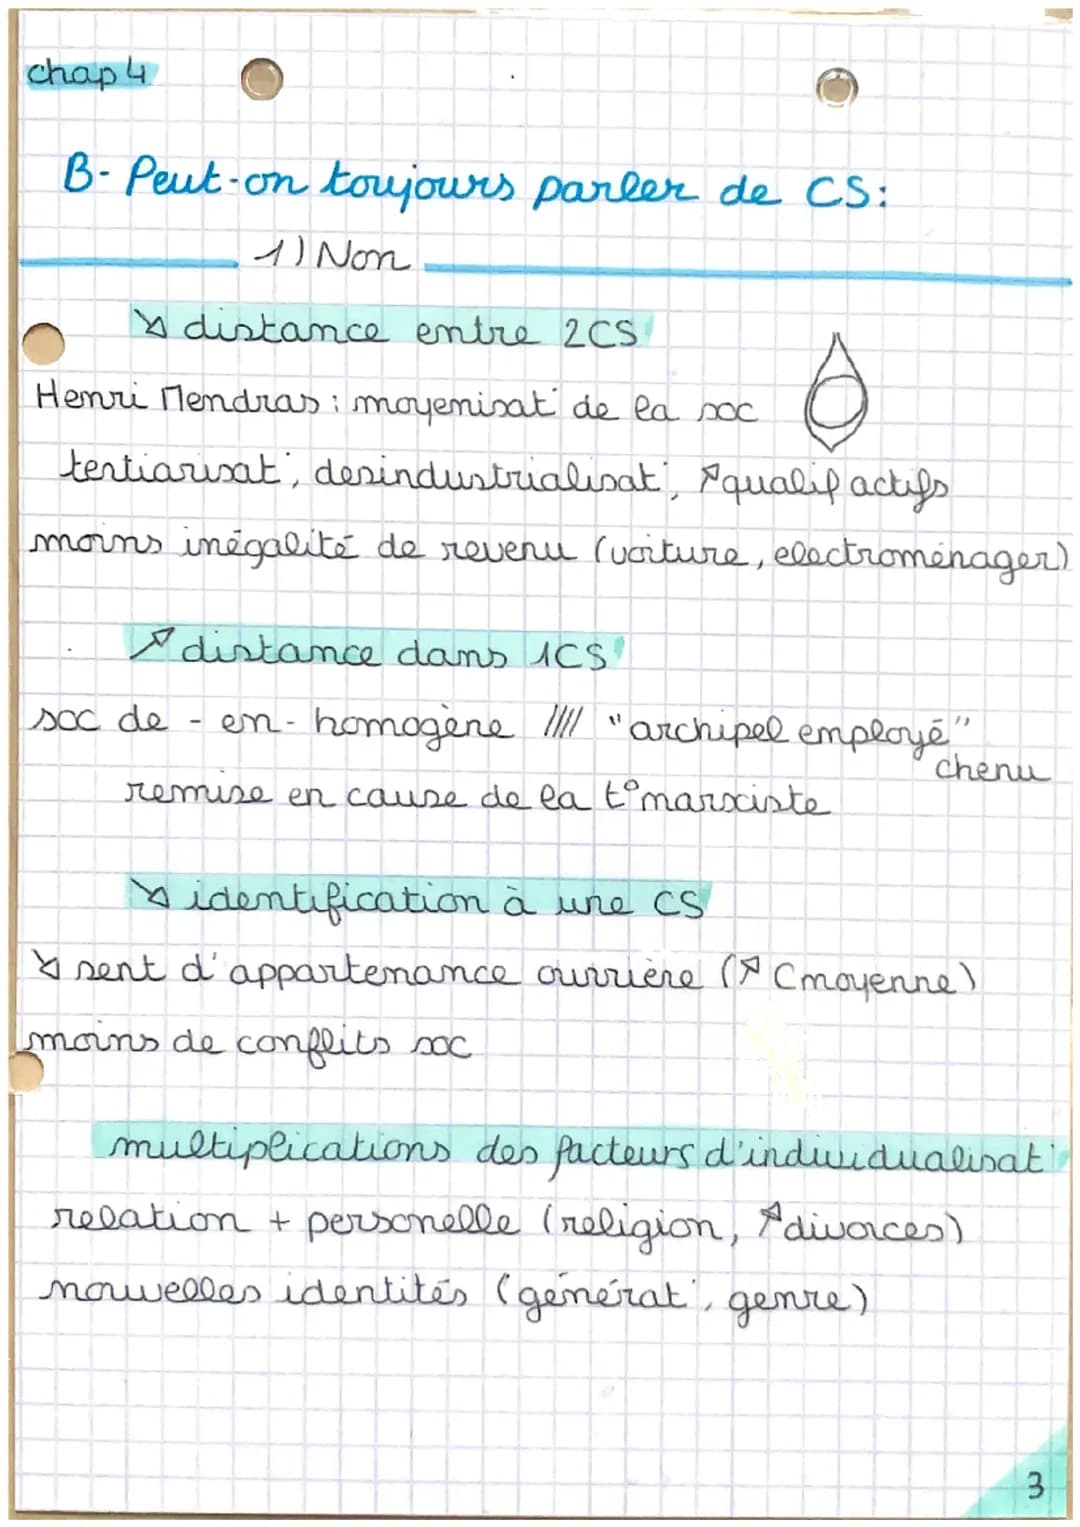 chap 4
B- Peut-on toujours parler de CS:
1) Non
↘ distance entre 2CS
Henri Mendras : moyenisat° de la soc
tertiarisat°, desindustrialisat°, ↗qualif actifs
moins inégalité de revenu (voiture, electroménager)
↗ distance dans 1CS
soc de - en - homogène ///// "archipel employé"
chenu
remise en cause de la t° marxiste
↘ identification à une CS
↘ sent d'appartenance ouvrière (↗ Cmoyenne)
moins de conflits soc
multiplications des facteurs d'individualisat°
relation + personelle (religion, ↗divorces)
nouvelles identités (générat°, genre)
3